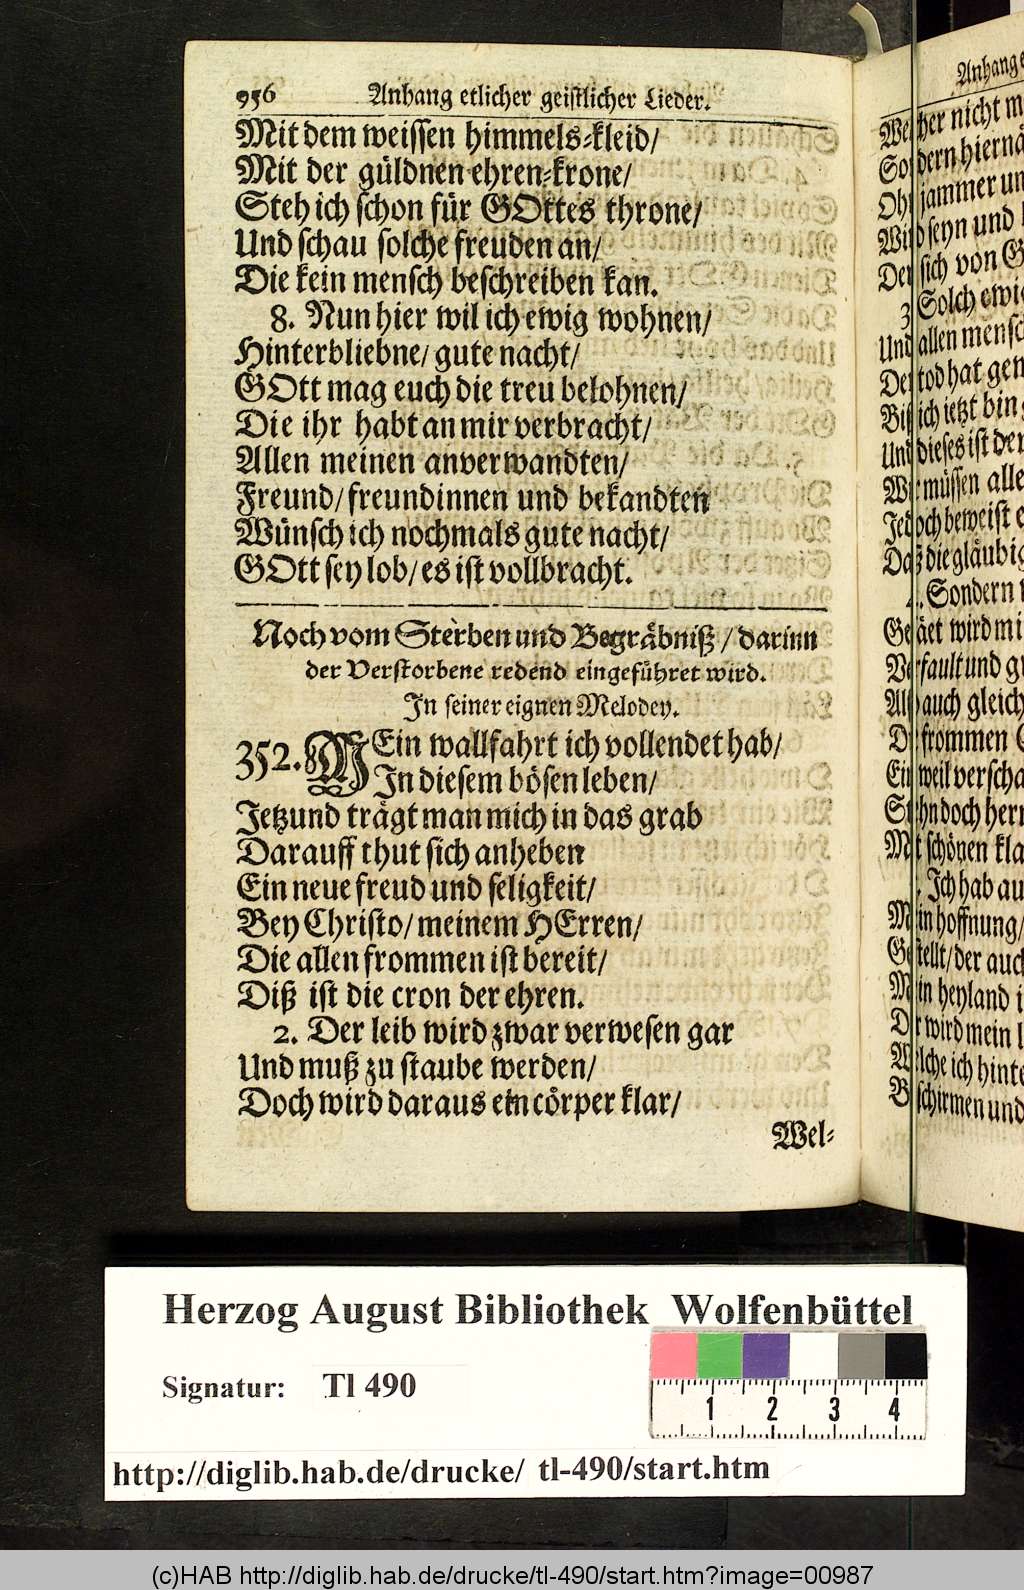 956 Anhang etlicher geistlicher Lieder.
Mit dem weissen himmels-kleid/
Mit der güldnen ehren-krone/
Steh ich schon für GOttes throne/
Und schau solche freuden an/
Die kein mensch beschreiben kan.
8. Nun hier wil ich ewig wohnen/
Hinterbliebne/ gute nacht/
GOtt mag euch die treu belohnen/
Die ihr habt an mir verbracht/
Allen meinen anverwandten/
Freund/ freundinnen und bekandten
Wünsch ich nochmals gute nacht/
GOtt sey lob/ es ist vollbracht.
Noch vom Sterben und Begräbniß/ darinn
der Verstorbene redend eingeführet wird.
In seiner eignen Melodey.
352. MEin wallfahrt ich vollendet hab/
In diesem bösen leben/
Jetzund trägt man mich in das grab
Darauff thut sich anheben
Ein neue freud und seligkeit/
Bey Christo/ meinem HErren/
Die allen frommen ist bereit/
Diß ist die cron der ehren.
2. Der leib wird zwar verwesen gar
Und muß zu staube werden/
Doch wird daraus ein cörper klar/
Wel-
Anhang
nicht
hiernä
jammer
seyn und
sich von
3 Solch ewi
Und allen mensch
tod hat
ich jetzt bin
Und dieses ist der
müssen alle
beweist
die gläubig
4. Sondern
wird
und
auch gleich
frommen
weil
doch
schönen
Ich hab
hoffnung/
der auch
heyland
wird mein
ich
und
Herzog August Bibliothek Wolfenbüttel
Signatur: Tl 490
1 2 3 4
http://diglib.hab.de/drucke/ tl-490/start.htm
(c)HAB http://diglib.hab.de/drucke/tl-490/start.htm?image=00987